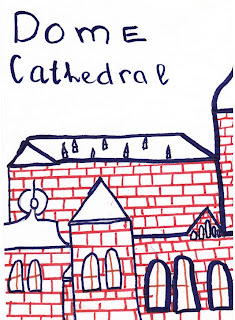 Dome
Cathedral